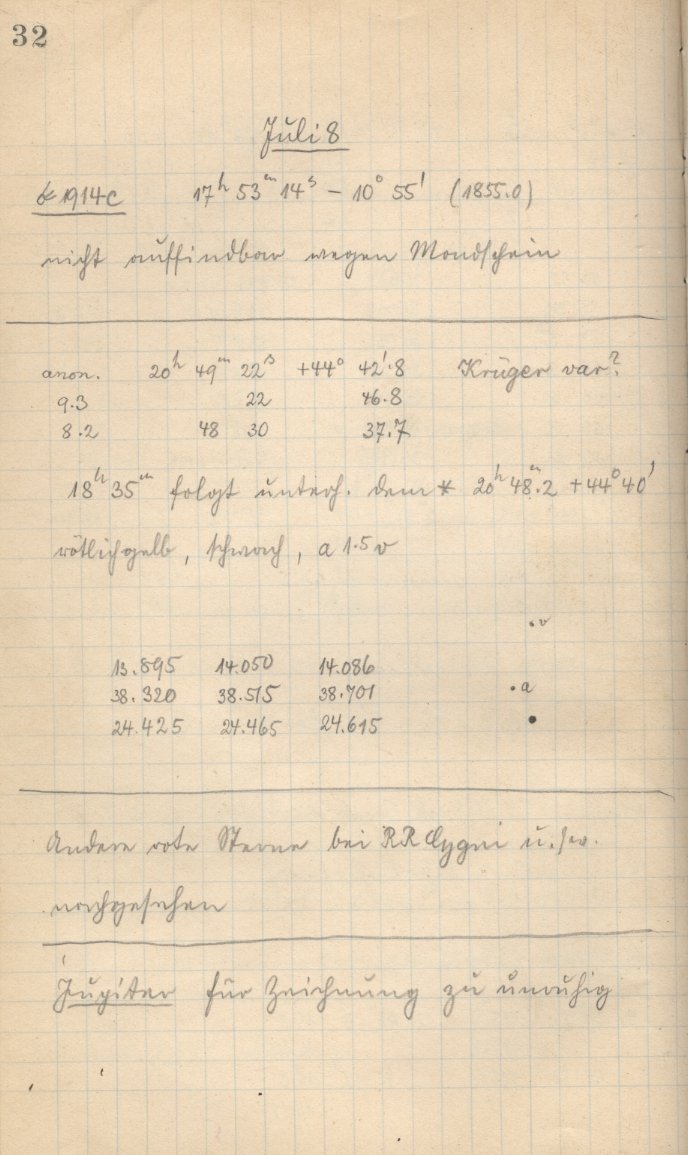 32
Juli 8
☄ 1914c 17ʰ 53ᵐ 14ˢ − 10° 55' (1855.0)
nicht auffindbar wegen Mondschein
anon. 20ʰ 49ᵐ 22ˢ +44° 42'.8 Krüger var?
9.3 22 46.8
8.2 48 30 37.7
18ʰ 35ᵐ folgt unterh. dem * 20ʰ 48ᵐ.2 +44° 40'
rötlichgelb, schwach, a 1.5 v
.v
13.895 14.050 14.086
38.320 38.515 38.701 .a
24.425 24.465 24.615
Andere rote Sterne bei RR Cygni u.sw.
nachgesehen
Jupiter für Zeichnung zu unruhig